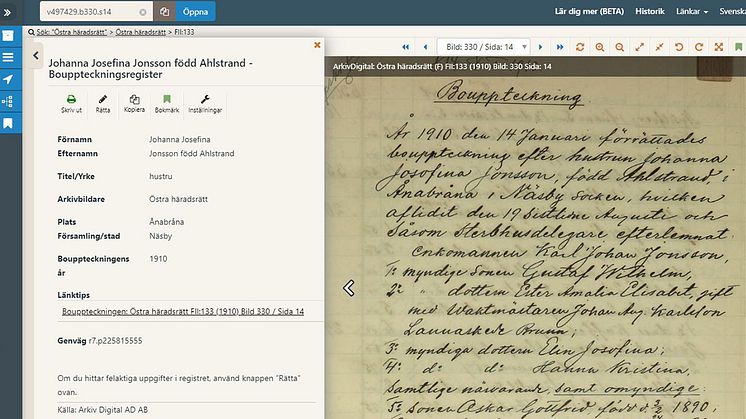 v497429.b330.s14
Öppna
Lär dig mer (BETA)
Historik
Länkar
Svenska
Sök: "Östra häradsrätt" > Östra häradsrätt > FII:133
Johanna Josefina Jonsson född Ahlstrand -
Bouppteckningsregister
Skriv ut
Rätta
Kopiera
Bokmärk
Inställningar
Förnamn Johanna Josefina
Efternamn Jonsson född Ahlstrand
Titel/Yrke hustru
Arkivbildare Östra häradsrätt
Plats Ånabråna
Församling/stad Näsby
Bouppteckningens 1910
år
Länktips
Bouppteckning: Östra häradsrätt FII:133 (1910) Bild 330 / Sida 14
Genväg r7.p225815555
Om du hittar felaktiga uppgifter i registret, använd knappen "Rätta"
ovan.
Källa: Arkiv Digital AD AB
Bild: 330 / Sida: 14
ArkivDigital: Östra häradsrätt (F) FII:133 (1910) Bild: 330 Sida: 14
Bouppteckning.
År 1910 den 14 Januari förrättades
bouppteckning efter hustrun Johanna
Josofina Jonsson, född Ahlstrand, i
Anabråna i Näsby Socken, hvilken
aflidit den 19 sistlidne Augusti och
såsom Sterbhusdelegare efterlemnat
enkomannen Karl Johan Jonsson,
1: myndige Sonen Gustaf Wilhelm,
2: " dottern Ester Amalia Elisabet, gift
med Waktmästaren Johan Aug. Karlsson
Lannaskede Brunn;
3: myndiga dottern Elin Josofina;
4: d: d: Hanna Kristina,
Samtlige närvarande, samt omyndige:
5: Sonen Oskar Gottfrid född d. 1890;